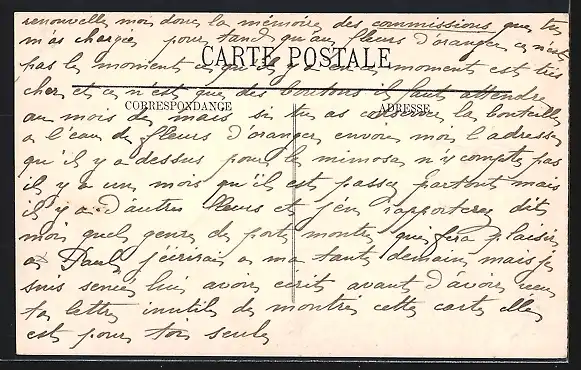 renouvelle moi donc la mémoire des commissions que tu
m'as chargée pour tant qu'au fleurs d'oranger ce n'est
pas le moment ce qu'il y a en ce moment est très
CARTE POSTALE
cher et ce n'est que des boutons il faut attendre
CORRESPONDANCE
ADRESSE
au mois de mais si tu as conservé la bouteille
a l'eau de fleurs d'oranger envoie moi l'adresse
qu'il y a dessus pour le mimosa n'y compte pas
il y a un mois qu'il est passé partout mais
il y a d'autres fleurs et j'en rapporterai dit
moi quel genre de porte montre qui fera plaisir
a Paul j'écrirais a ma tante demain mais je
suis sensée lui avoir écrit avant d'avoir reçu
ta lettre inutile de montrer cette carte elle
est pour toi seule